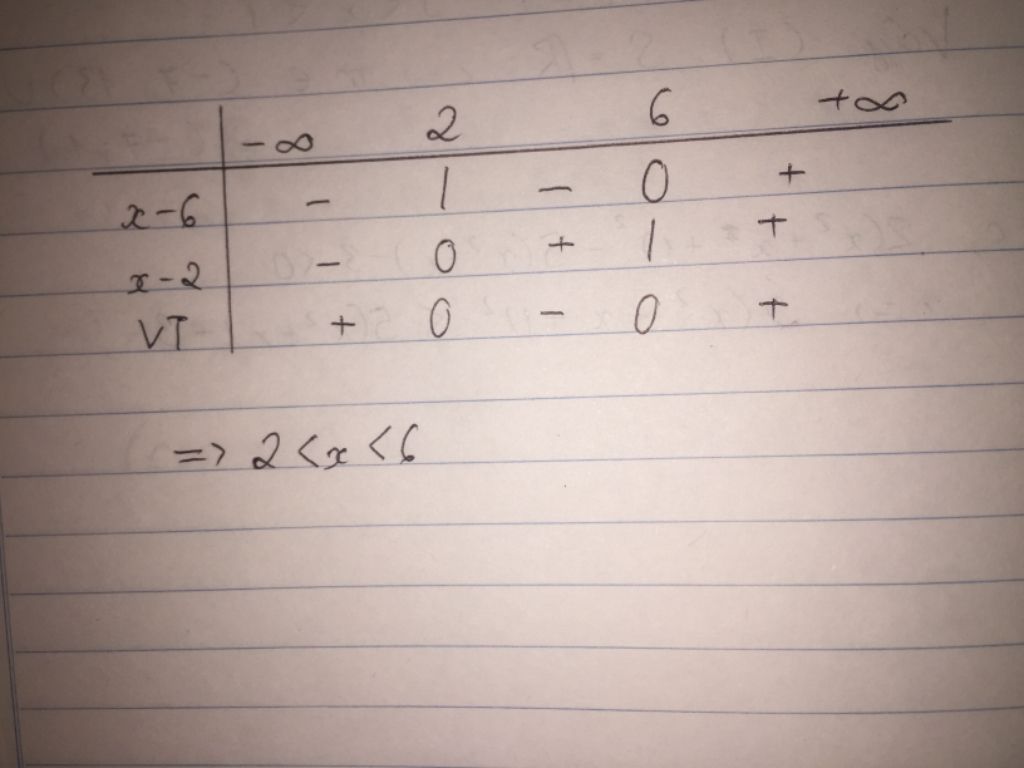 -∞ 2 6 +∞
x-6 - | - 0 +
x-2 - 0 + | +
VT + 0 - 0 +
=> 2 < x < 6